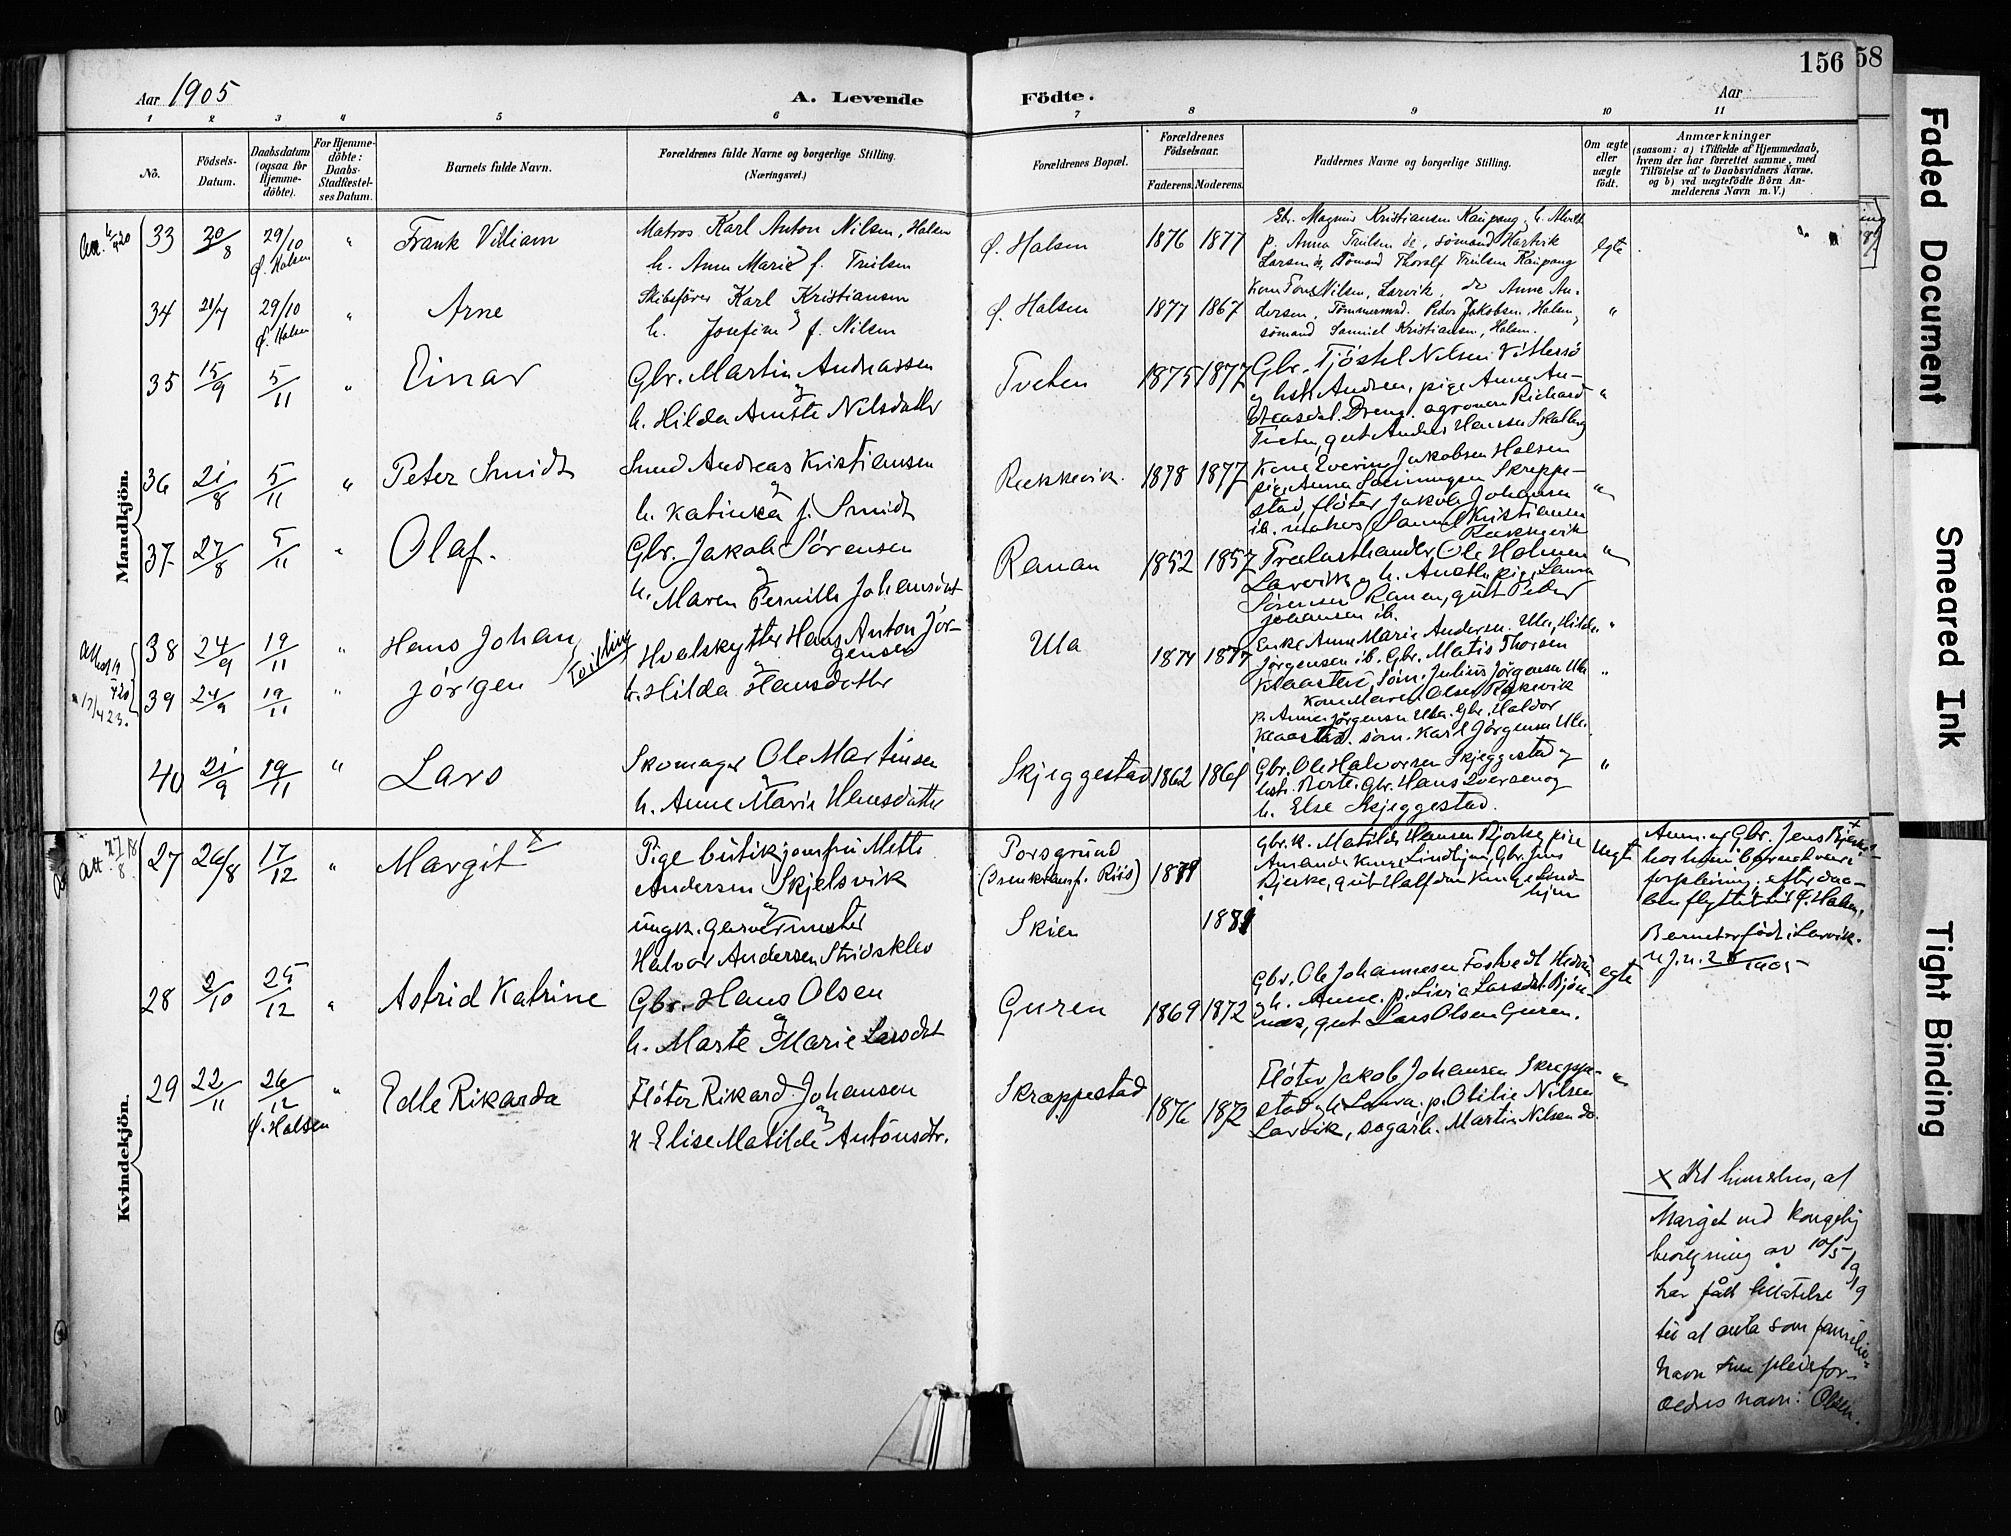 156
58
Aar 1905
A. Levende Födte.
Aar
1 2 3 4 5 6 7 8 9 10 11
No.
Födsels-
Datum.
Daabsdatum
(ogsaa for
Hjemme-
döbte).
For Hjemme-
döbte:
Daabs-
Stadfæstel-
ses Datum.
Barnets fulde Navn.
Forældrenes fulde Navne og borgerlige Stilling.
(Næringsvei.)
Forældrenes Bopæl.
Forældrenes
Födselsaar.
Faderens. Moderens.
Faddernes Navne og borgerlige Stilling.
Om ægte
eller
uægte
födt.
Anmærkninger
(saasom: a) i Tilfælde af Hjemmedaab,
hvem der har forrettet samme, med
Tilföielse af to Daabsvidners Navne,
og b) ved uægtefödte Börn An-
melderens Navn m. V.)
Mandkjön.
33 20/8 29/10 Ø. Halsen " Frank Villiam
Matros Karl Anton Nilsen, Halsen
og
h. Anna Marie f. Trulsen
Ø. Halsen 1876 1877
Gbr. Magnus Kristiansen Kaupang, h.
p. Anna Trulsen do, sømand Hartvik
Larsen do, sømand Thoralf Trulsen Kaupang
egte
34 21/7 29/10 Ø. Halsen " Arne
Skibsfører Karl Kristiansen
og
h. Josefine f. Nilsen
Ø. Halsen 1877 1867
Kone Nilsen, Larvik, do Anne An-
dersen, Tømmermd. Peder Jakobsen, Halsen,
sømand Samuel Kristiansen, Halsen.
"
35 15/9 5/11 " Einar
Gbr. Martin Andreassen
og
h. Hilda Amte Nilsdatter
Tveten 1875 1877
Gbr. Tjøstel Nilsen Vittersø
og hstr. Andrea, pige Anne An-
dreasdat. Dreng. agronom Richard
Tveten, gut Anders Hansen Skalberg
"
36 21/8 5/11 " Peter Smidt
Smed Andreas Kristiansen
og
h. Katinka f. Smidt
Rækkevik. 1878 1877
Kone Jakobsen Halsen
pige Anna Skreppe-
stad, fløter Jakob Johansen
ib. matros Samuel Kristiansen
Rækkevik
"
37 27/8 5/11 " Olaf.
Gbr. Jakob Sørensen
og
h. Maren Pernille Johansdat
Ranan 1852 1857
Trælasthandler Ole Holmen
Larvik og h. Anette, pige Laura
Sørensen Ranen, gut Peder
Johansen ib.
"
38 24/9 19/11 " Hans Johan
39 24/9 19/11 " Jørgen
Tvilling
Hvalskytter Hans Anton Jør-
gensen
og
h. Hilda Hansdatter
Ula 1874 1877
Enke Anne Marie Andersen. Ula, Hilda
Jørgensen ib. Gbr. Matis Thorsen
Klaastad, Søm. Julius Jørgensen Ula
Kone Maren Olsen Rekkevik
p. Anne Jørgensen Ula. Gbr. Haldor
Klaastad. søm. Karl Jørgensen Ula.
"
"
40 21/9 19/11 " Lars
Skomager Ole Martinsen
og
h. Anne Marie Hansdatter
Skjeggestad 1862 1861
Gbr. Ole Halvorsen Skjeggestad og
hstr. Berte. Gbr. Hans Iversen og
h. Else Skjeggestad.
"
Kvindekjön.
Att. 27/8 18
27 26/8 17/12 " Margit x
Pige butikjomfru Mette
Andersen Skjelsvik
og
ungk. garvermester
Halvor Andersen Stridsklev
Porsgrund
Skien
1879
1881
Gbr.k. Matilde Hansen Bjerke, pige
Amanda Kunge Lindhjem, Gbr. Jens
Bjerke, gut Halfdan Kunge Lind-
hjem
uegte
Anm. og Gbr. Jens Bjerke +
hos ham barnet
forpleining, efter daa-
ben flyttet til Ø. Halsen.
Barnet er født i Larvik.
28 2/10 25/12 " Astrid Katrine
Gbr. Hans Olsen
og
h. Marte Marie Larsdat
Guren 1869 1872
Gbr. Ole Johannesen Fostvedt Hedrum
og h. Anne. p. Livia Larsdat Bjøn-
nes, gut Lars Olsen Guren.
egte
29 22/11 26/12 Ø. Halsen " Edle Rikarda
Fløter Rikard Johansen
og
h Elise Matilde Antonsdtr.
Skræppestad 1876 1872
Fløter Jakob Johansen Skreppe-
stad og h Laura. p. Otilie Nilsen
Larvik, sagarb. Martin Nilsen do.
"
x Det bemerkes, at
Margit ved kongelig
bevilgning av 10/5 1919
har fått tillatelse
til at anta som familie-
navn sine pleiefor-
ældres navn: Olsen.
Faded Document
Smeared Ink
Tight Binding